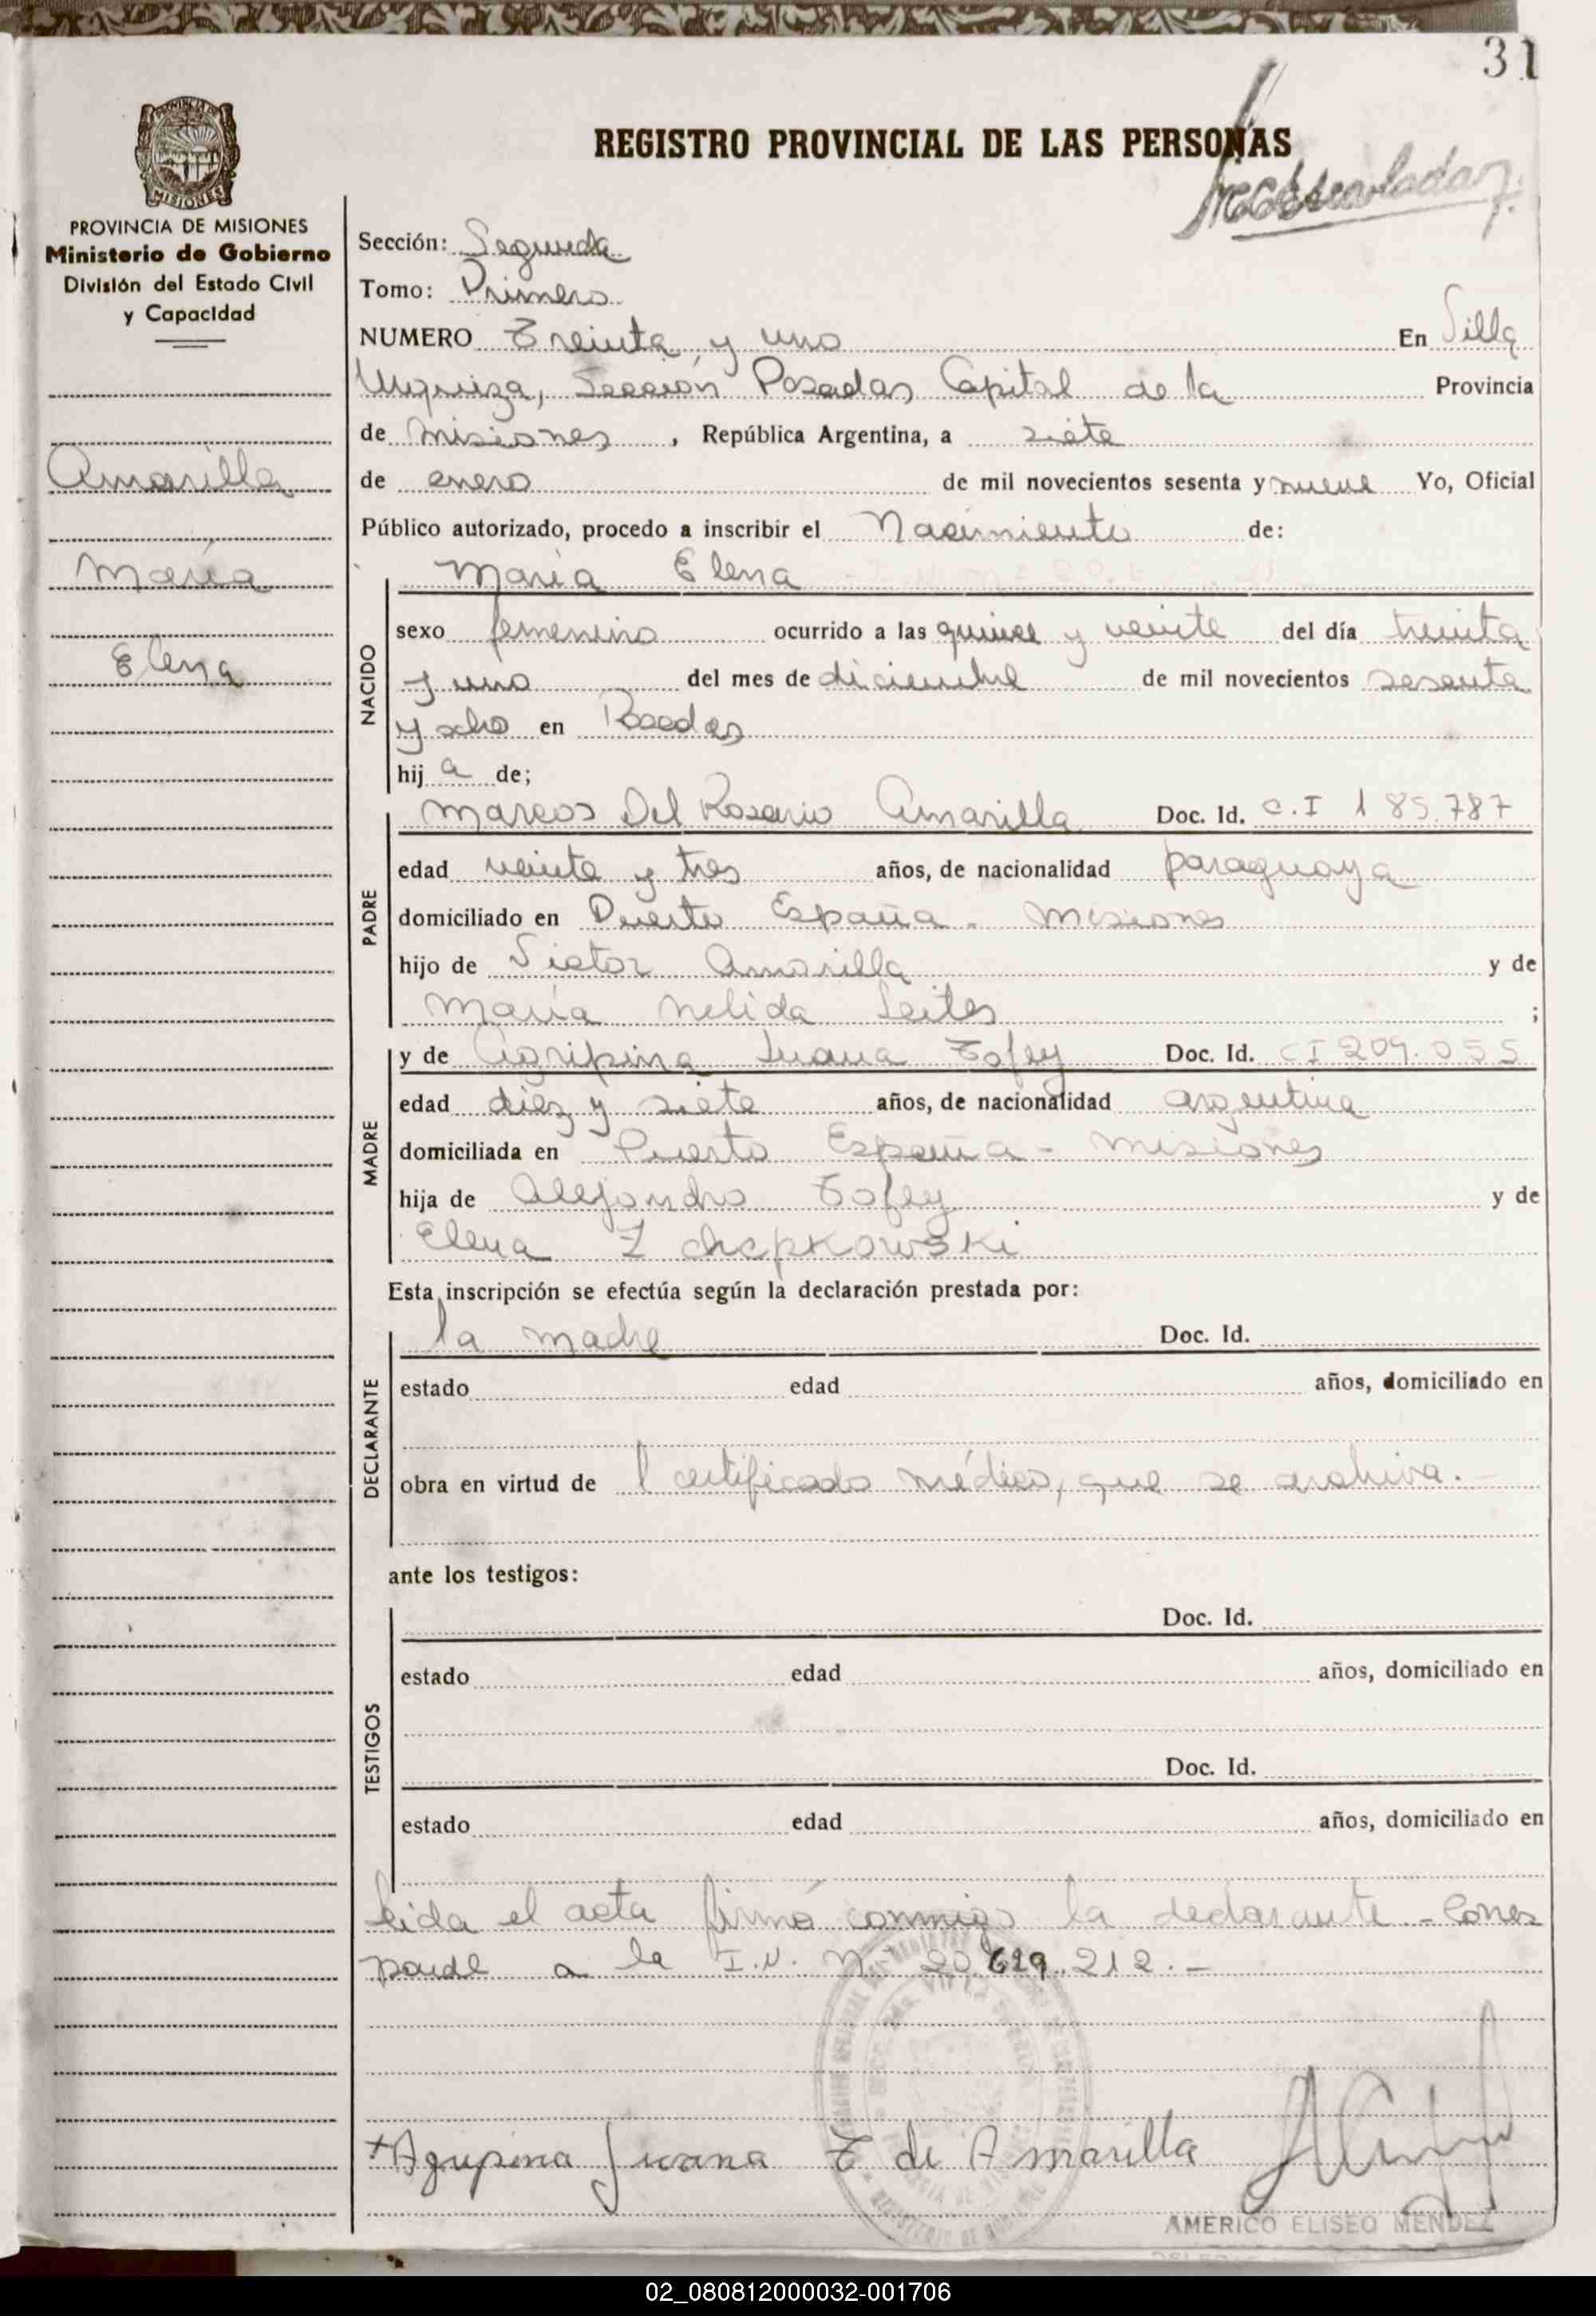 31
REGISTRO PROVINCIAL DE LAS PERSONAS
MISIONES
PROVINCIA DE MISIONES
Ministerio de Gobierno
División del Estado Civil
y Capacidad
Amarilla
María
Elena
Sección: Segunda
Tomo: Primero
NUMERO Treinta y uno En Villa
Urquiza, Sección Posadas Capital de la Provincia
de Misiones, República Argentina, a siete
de enero de mil novecientos sesenta y nueve Yo, Oficial
Público autorizado, procedo a inscribir el Nacimiento de:
María Elena
NACIDO
sexo femenino ocurrido a las quince y veinte del día treinta
y uno del mes de diciembre de mil novecientos sesenta
y ocho en Posadas
hija de;
PADRE
Marcos Del Rosario Amarilla Doc. Id. C.I 185.787
edad veinte y tres años, de nacionalidad paraguaya
domiciliado en Puerto España - Misiones
hijo de Victor Amarilla y de
María Nelida Leites ;
MADRE
y de Agripina Juana Tofey Doc. Id. CI 209.055
edad diez y siete años, de nacionalidad argentina
domiciliada en Puerto España - Misiones
hija de Alejandro Tofey y de
Elena Z chepkowski
Esta inscripción se efectúa según la declaración prestada por:
DECLARANTE
la madre Doc. Id.
estado edad años, domiciliado en
obra en virtud de l certificado médico, que se archiva.-
ante los testigos:
TESTIGOS
Doc. Id.
estado edad años, domiciliado en
Doc. Id.
estado edad años, domiciliado en
Leida el acta firmó conmigo la declarante - Corres
ponde a la I.N. Nº 20.619.212.-
Agripina Juana T de Amarilla
AMERICO ELISEO MENDEZ
02_080812000032-001706